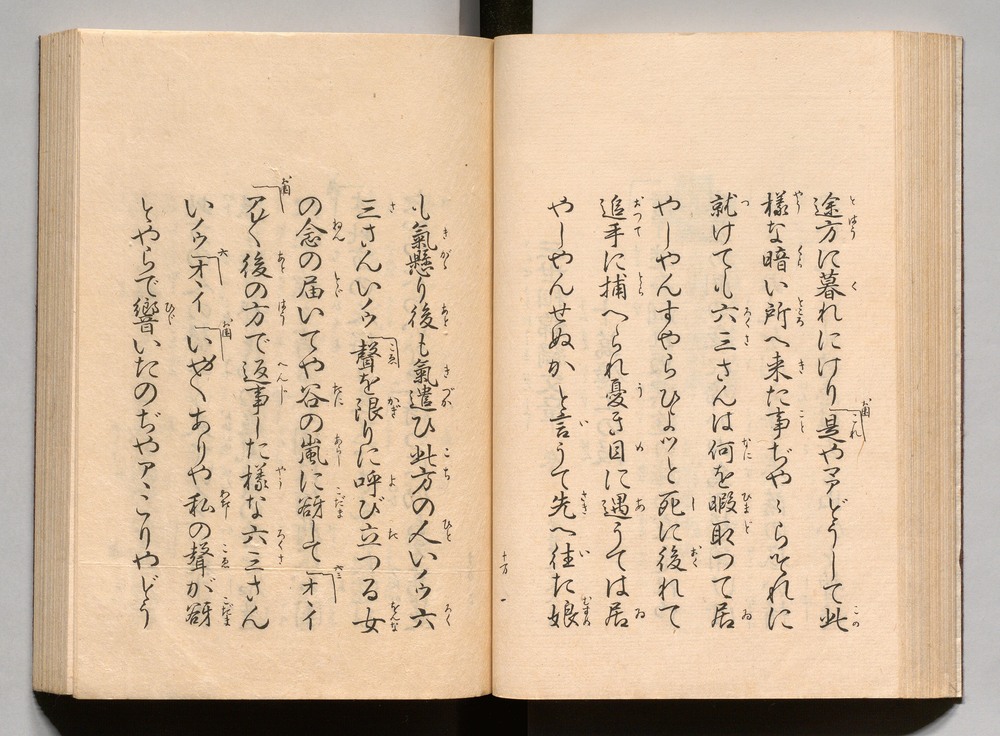 途方に暮れにけり「是やマアどうして此
樣な暗い所へ来た事ぢやゝらそれに
就けても六三さんは何を暇取つて居
やしやんすやらひよツと死に後れて
追手に捕へられ憂き目に遇うては居
やしやんせぬかと言うて先へ往た娘
も氣懸り後も氣遣ひ此方の人いノウ六
三さんいノウ「聲を限りに呼び立つる女
の念の届いてや谷の嵐に谺して「オヽイ
アレ〳〵後の方で返事した樣な六三さん
いノウ「オヽイ「いや〳〵ありや私の聲が谺
とやらで響いたのぢやアこりやどう